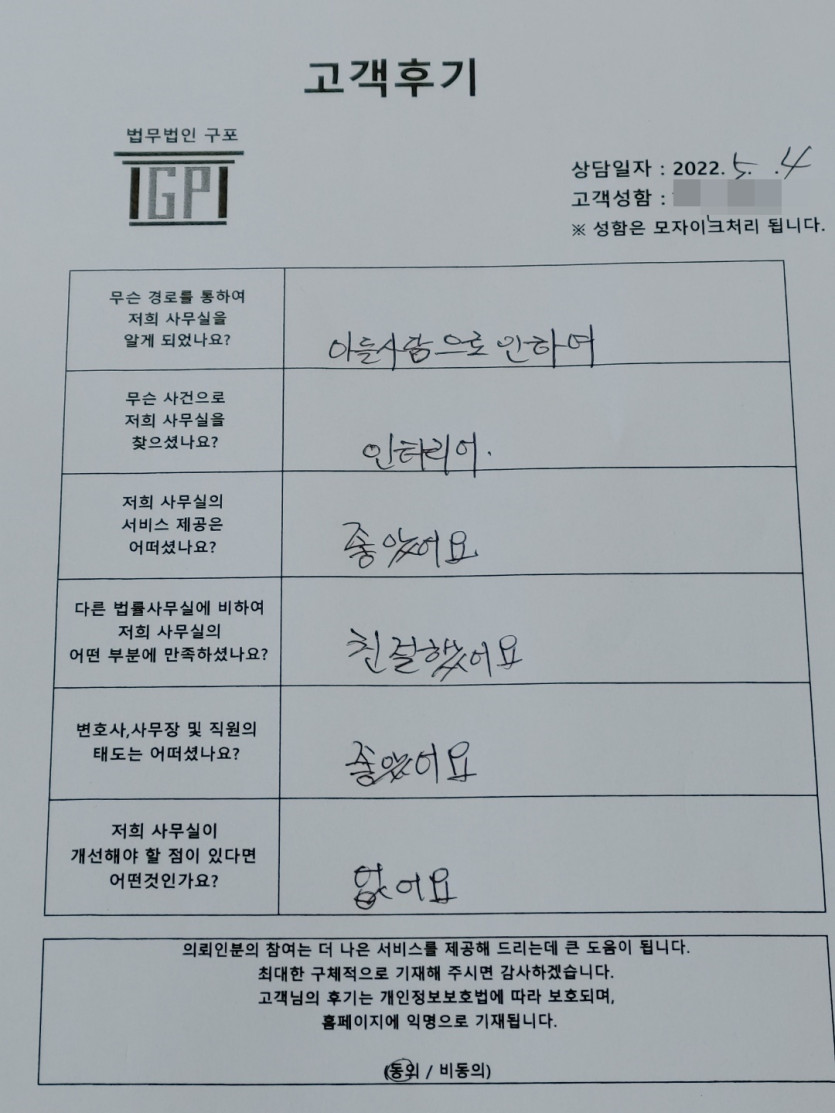 고객후기
법무법인 구포
IGPI
상담일자 : 2022. 5. .4
고객성함 :
※ 성함은 모자이크처리 됩니다.
무슨 경로를 통하여
저희 사무실을
알게 되었나요?
아들사람으로 인하여
무슨 사건으로
저희 사무실을
찾으셨나요?
인터리어.
저희 사무실의
서비스 제공은
어떠셨나요?
좋았어요
다른 법률사무실에 비하여
저희 사무실의
어떤 부분에 만족하셨나요?
친절했어요
변호사,사무장 및 직원의
태도는 어떠셨나요?
좋았어요
저희 사무실이
개선해야 할 점이 있다면
어떤것인가요?
없어요
의뢰인분의 참여는 더 나은 서비스를 제공해 드리는데 큰 도움이 됩니다.
최대한 구체적으로 기재해 주시면 감사하겠습니다.
고객님의 후기는 개인정보보호법에 따라 보호되며,
홈페이지에 익명으로 기재됩니다.
(동의 / 비동의)